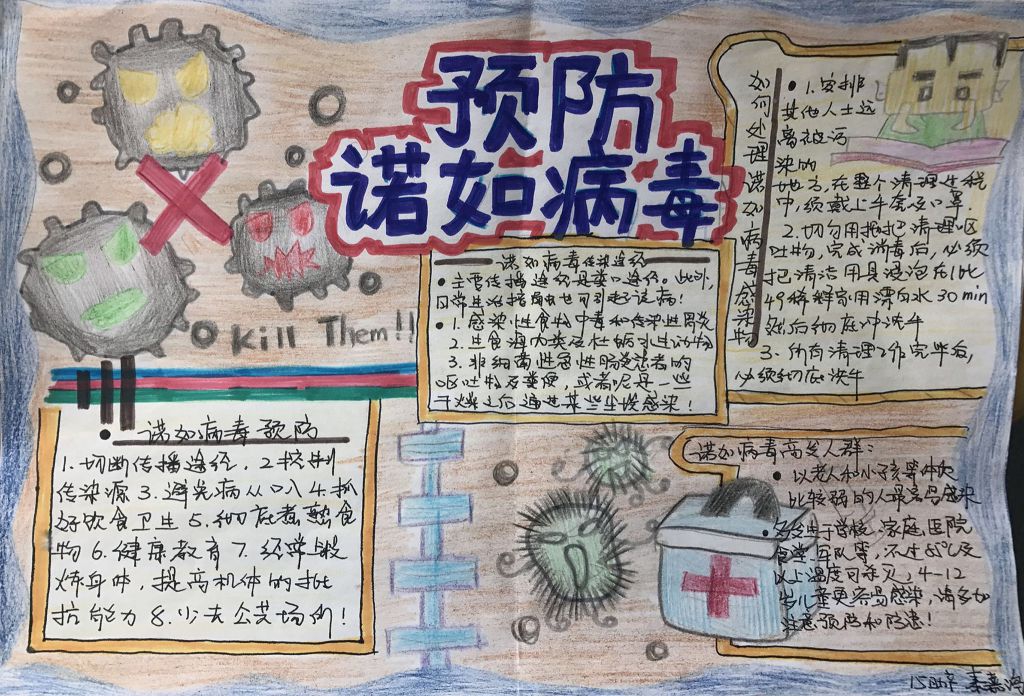 预防
诺如病毒
Kill Them!!
诺如病毒传染途径
•主要传播途径是粪口途径。此外,
日常生活接触也可引起该病!
•1.感染性食物中毒和传染性胃炎
2.生食海内类及牡蛎水生动物
3.非细菌性急性肠炎患者的
呕吐物及粪便,或者泥丹一些
干燥之后通过某些尘埃感染!
如何处理诺如病毒感染物
•1.安排
其他人士远
离被污
染的
地方,在整个清理过程
中,须戴上手套及口罩.
2.切勿用拖把清理呕
吐物,完成消毒后,必须
把清洁用具浸泡在1比
49稀释家用漂白水30min
然后彻底冲洗
3.所有清理工作完毕后,
必须彻底洗手
•诺如病毒预防
1.切断传播途径,2控制
传染源3.避免病从口入4.抓
好饮食卫生5.彻底煮熟食
物6.健康教育7.经常锻
炼身体,提高机体的抵
抗能力8.少去公共场所!
诺如病毒高发人群:
•以老人和小孩等
比较弱的人最容易感染
•多发生于学校,家庭,医院
食堂,军队等,不过85℃及
以上温度可杀灭,4-12
岁儿童更容易感染,请多加
注意预防和防患!